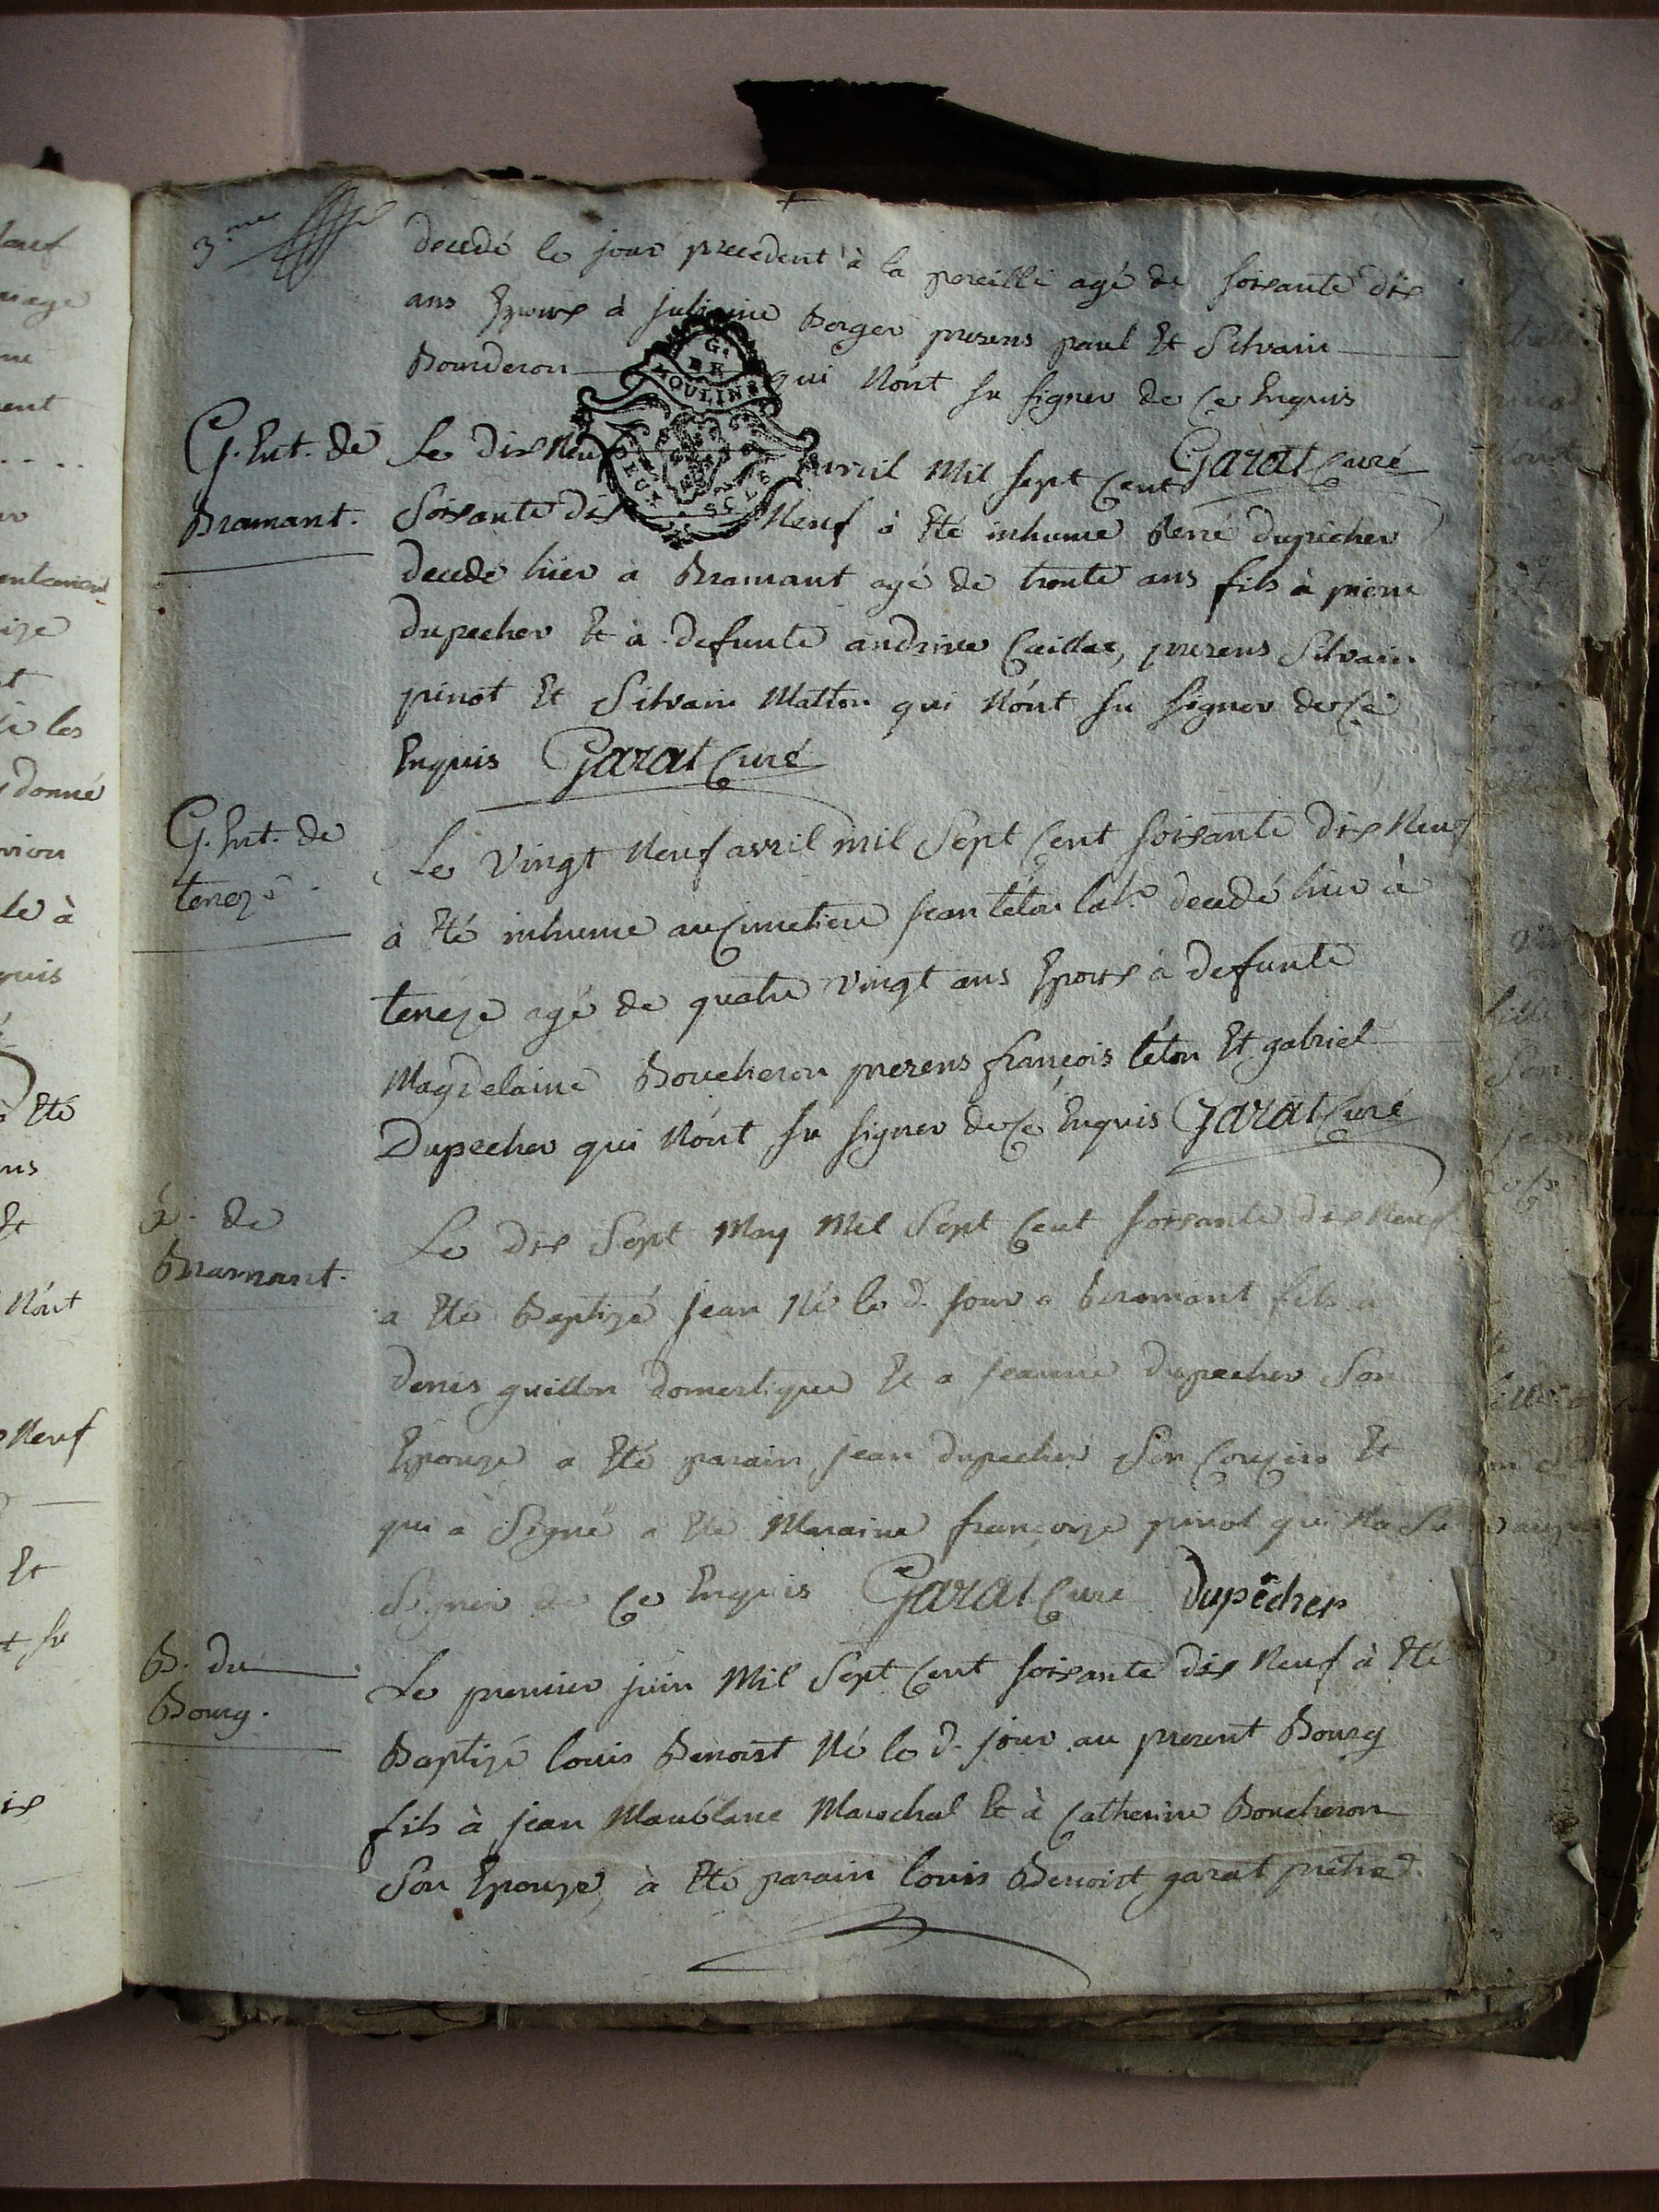 3.me
decedé le jour precedent à la poreille agé de soixante dix
ans Epoux à julienne Berger presens paul Et Silvain
Bourderon qui n'ont su signer de ce Enquis
Garat Curé
G. DE MOULINS
G. Ent. de
Bramant.
Le dix neuf avril mil sept cent
soixante dix neuf à Eté inhumé dupecher
decedé hier à Bramant agé de trente ans fils à pierre
dupecher Et à defunte andrive Caillat, presens Silvain
pinot Et Silvain Matton qui n'ont su signer de ce
Enquis Garat Curé
G. Ent. de
teneze.
Le vingt neuf avril mil sept cent soixante dix neuf
à Eté inhumé au Cimetiere jean téton lab.r decedé hier à
teneze agé de quatre vingt ans Epoux à defunte
Magdelaine Boucheron presens françois téton Et gabriel
Dupecher qui n'ont su signer de ce Enquis Garat Curé
de
Bramant.
Le dix sept May mil sept cent soixante dix neuf
a Eté Baptizé jean Né le d. jour a beramant fils a
denis guillon domestique Et a jeanne dupecher son
Epouze a Eté parain jean dupecher son Cousin Et
qui a signé a Eté Maraine françoize pinot qui na su
signer de ce Enquis Garat Curé Dupêcher
B. du
Bourg.
Le premier juin mil sept cent soixante dix neuf à Eté
Baptizé louis Benoist Né le d. jour au present Bourg
fils à jean Maublanc Marechal Et à Catherine Boucheron
son Epouze, à Eté parain louis Benoist garat prêtre